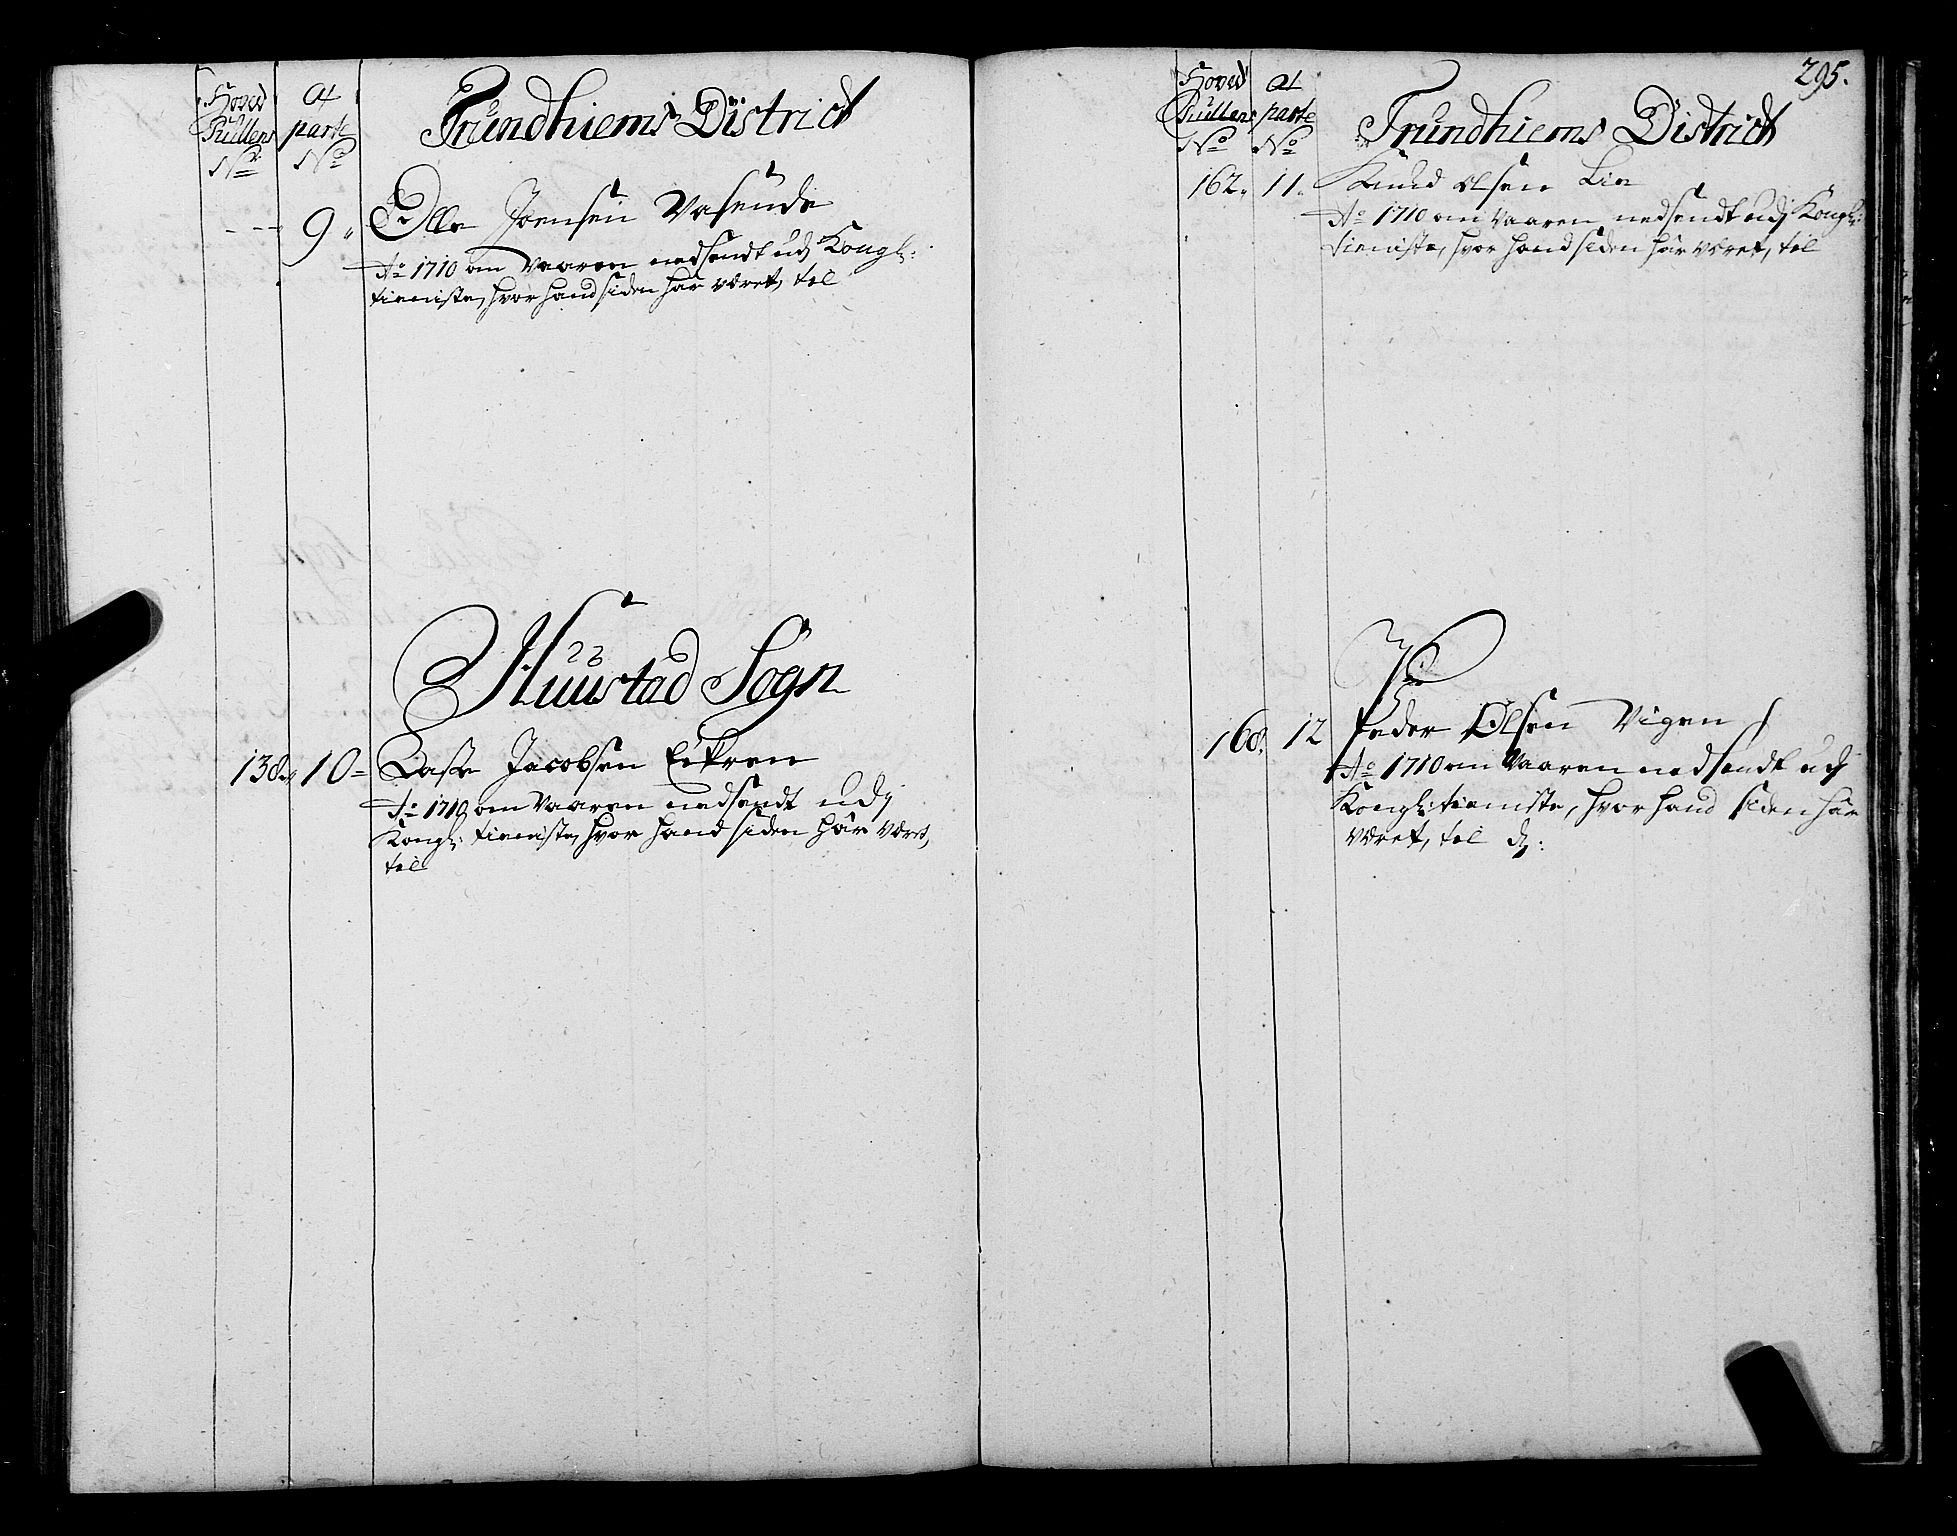 Hoved Rullens No
Aparte No
Trundhiems District
9. Olle Joensen Vasende
Ao 1710 om Vaaren nedsendt udj Kongl:
tieniste, hvor hand siden här været, til
Huustad Sogn
138. 10 Lasse Jacobsen Eikren
Ao 1710 om Vaaren nedsendt udj
Kongl: tieniste, hvor hand siden här været,
til
295.
Hoved Rullens No
Aparte No
Trundhiems District
162. 11. Knud Olsen Lie
Ao 1710 om Vaaren nedsendt udj Kongl:
tieniste, hvor hand siden här været, til
168. 12 Peder Olsen Vigen
Ao 1710 om Vaaren nedsendt udj
Kongl: tieniste, hvor hand siden här
været, til d: